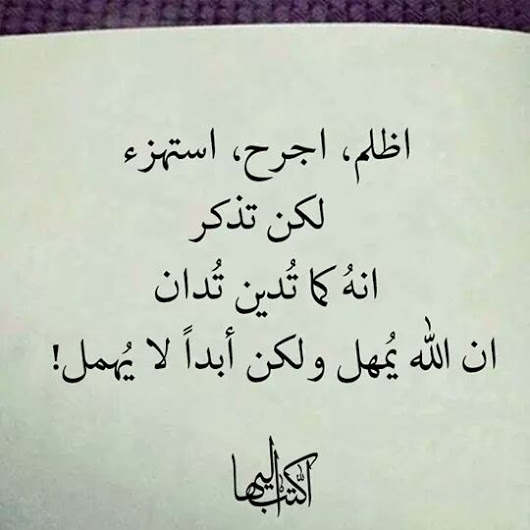 اظلم، اجرح، استهزء
لكن تذكر
انهُ كما تُدين تُدان
ان الله يُمهل ولكن أبداً لا يُهمل!
اكتب اليها